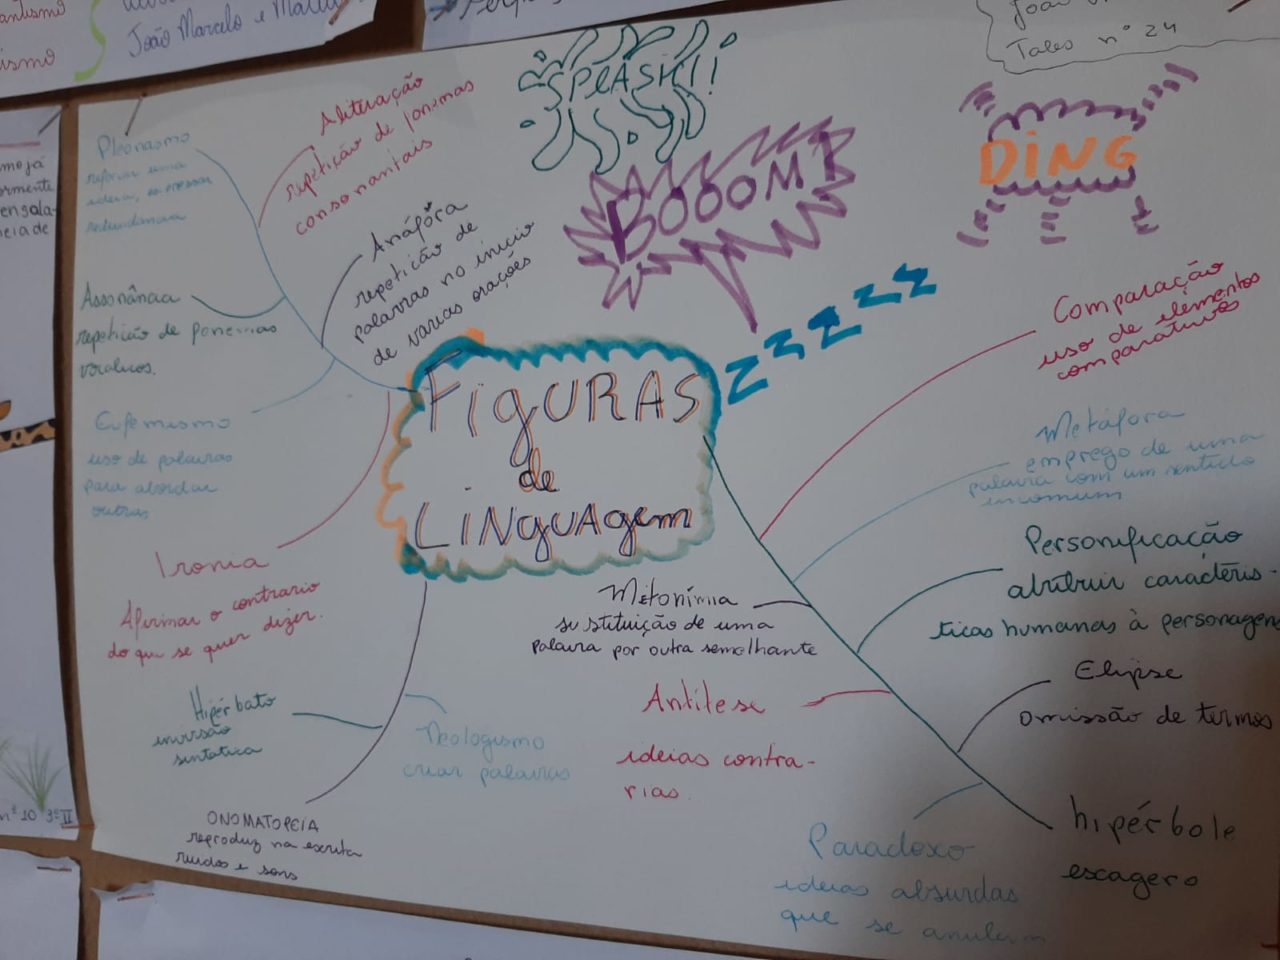 João Marcelo e
ismo
Tales nº 24
SPLASH!!
BOOOM!
DING
zzzzz
FIGURAS
de
LINGUAgem
Pleonasmo
reforçar uma
ideia,
redundância
Aliteração
repetição de fonemas
consonantais
Anáfora
repetição de
palavras no início
de varias orações
Assonância
repetição de fonemas
vocalicos.
Eufemismo
uso de palavras
para abordar
outras
Ironia
Afirmar o contrario
do que se quer dizer.
Hipérbato
inversão
sintatica
Neologismo
criar palavras
ONOMATOPEIA
reproduz na escrita
ruidos e sons
Comparação
uso de elementos
comparativos
Metáfora
emprego de uma
palavra com um sentido
incomum
Personificação
atribuir caracteris-
ticas humanas à personagen
Metonímia
sustituição de uma
palavra por outra semelhante
Antitese
ideias contra-
rias.
Elipse
omissão de termos
hipérbole
escagero
Paradoxo
ideias absurdas
que se anulam
mo já
ormente
en sala-
eia de
nº 10 3º II